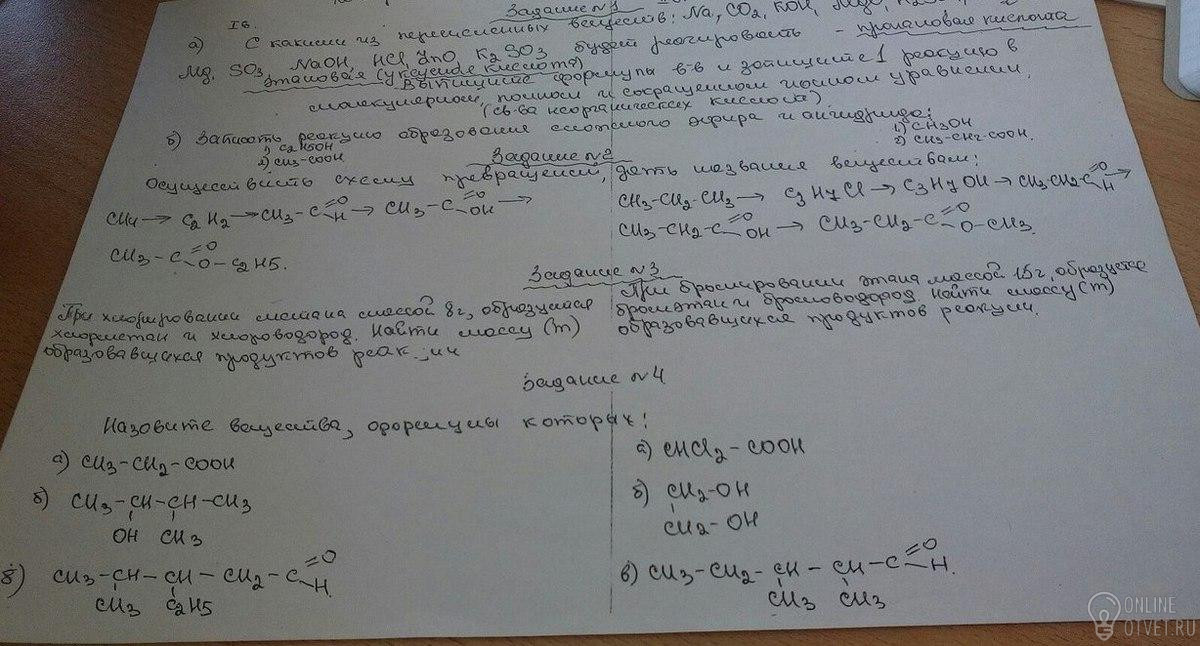 Задание №1
I в.
а) С какими из перечисленных веществ: Na, CO2, KOH, MgO,
Mg, SO3, NaOH, HCl, ZnO, K2SO3 будет реагировать - пропановая кислота
этановая (уксусная кислота)
Выпишите формулы в-в и запишите 1 реакцию в
молекулярном, полном и сокращенном ионном уравнении.
(св-ва неорганических кислот)
б) Записать реакцию образования сложного эфира и ангидрида:
1) C2H5OH
2) CH3-COOH
1) CH3OH
2) CH3-CH2-COOH.
Задание №2
Осуществить схему превращений, дать названия веществам:
CH4 → C2H2 → CH3-C=O H → CH3-C=O OH →
CH3-C=O O-C2H5.
CH3-CH2-CH3 → C3H7Cl → C3H7OH → CH3-CH2-C=O H →
CH3-CH2-C=O OH → CH3-CH2-C=O O-CH3.
Задание №3
При хлорировании метана массой 8г, образуется
хлорметан и хлороводород. Найти массу (m)
образовавшихся продуктов реакции
При бромировании этана массой 15г, образуется
бромэтан и бромоводород. Найти массу (m)
образовавшихся продуктов реакции.
Задание №4
Назовите вещества, формулы которых:
а) CH3-CH2-COOH
б) CH3-CH-CH-CH3
OH CH3
в) CH3-CH-CH-CH2-C=O H.
CH3 C2H5
а) CHCl2-COOH
б) CH2-OH
CH2-OH
в) CH3-CH2-CH-CH-C=O H.
CH3 CH3
ONLINE
OTVET.RU